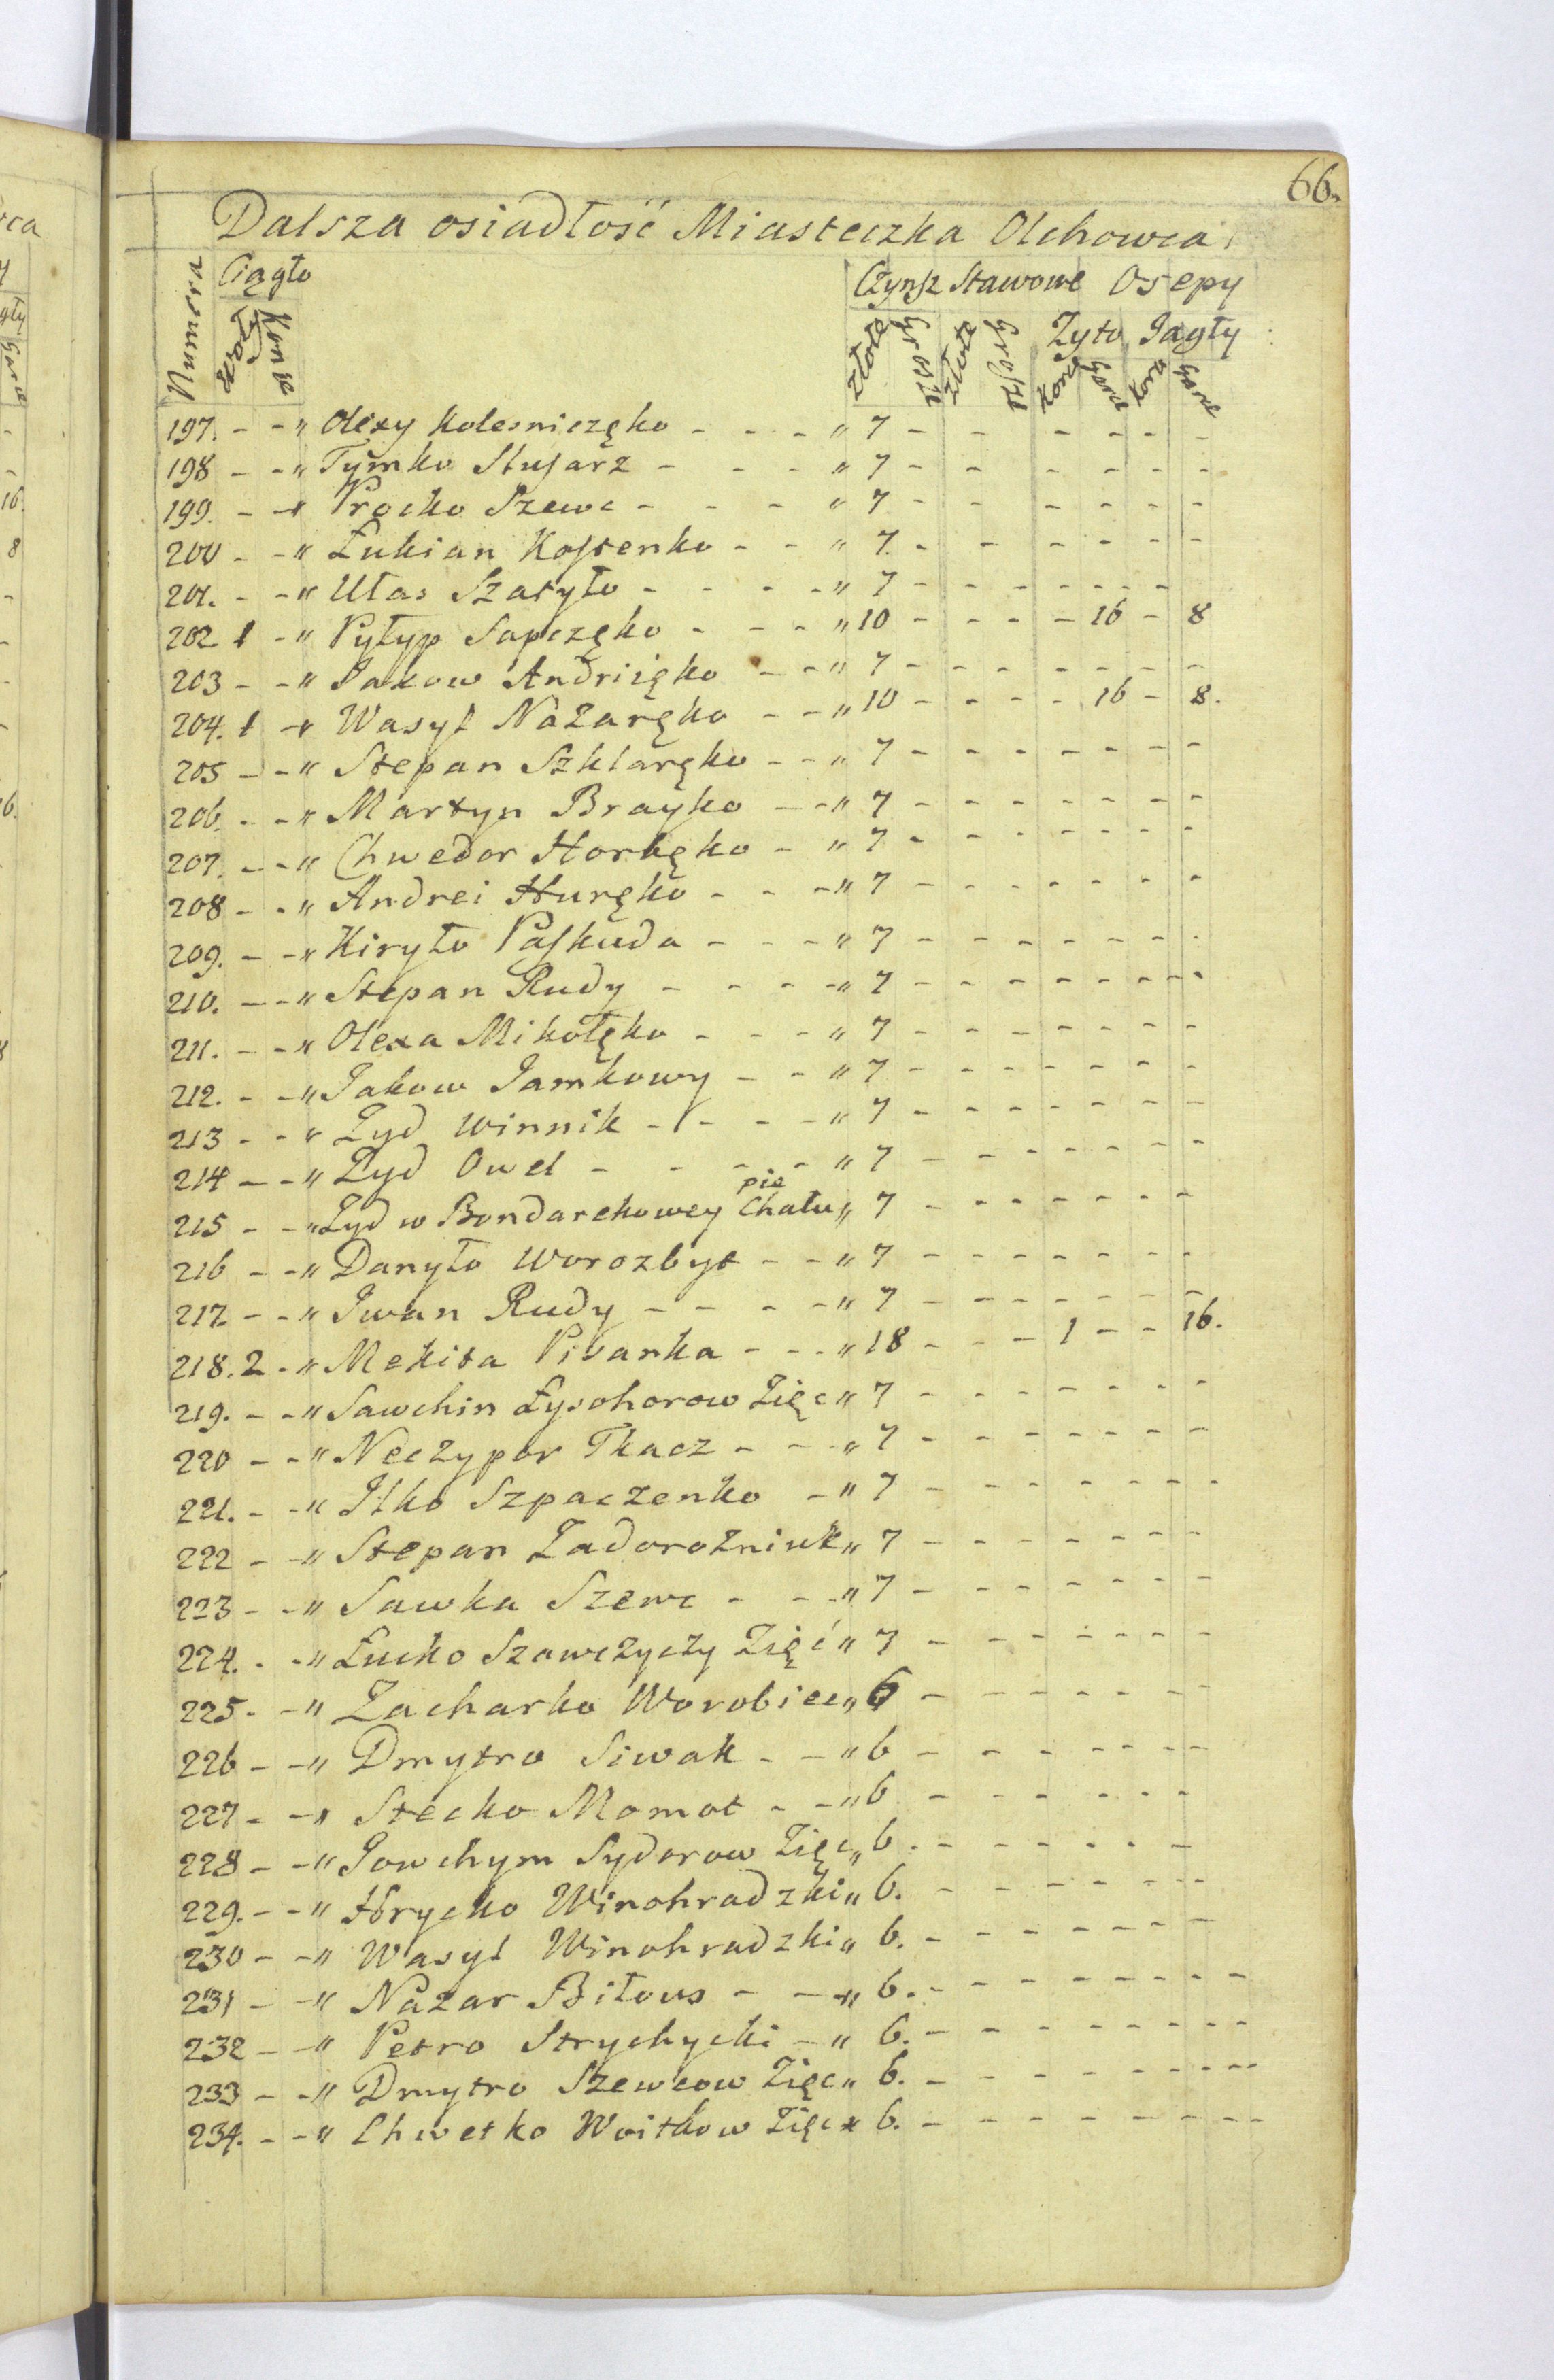 66.
Dalsza osiadłość Miasteczka Olchowca
Numera Ciągło Czynsz Stawowe Osepy
Konie Złote Grosze Złote Grosze Żyto Jagły
Korc Garc Korc Garc
197. - - " Olexy Kolesniczęko - - - " 7 - - - - - -
198 - - " Tymko Slusarz - - - " 7 - - - - - -
199. - - " Procko Szewc - - - " 7 - - - - - -
200 - - " Łukian Kostenko - - " 7. - - - - - -
201. - - " Ułas Szatyło - - - - " 7 - - - - - - -
202 1 - " Pyłyp Sapczęko - - - " 10 - - - - 16 - 8
203 - - " Jakow Andriięko - - " 7 - - - - - - - -
204. 1 - " Wasyl Nazaręko - - " 10 - - - - 16 - 8.
205 - - " Stepan Szklaręko - - " 7 - - - - - - - -
206. - - " Martyn Brayko - - " 7 - - - - - - - -
207. - - " Chwedor Horbęko - " 7 - - - - - - - -
208 - - " Andrei Huręko - - - " 7 - - - - - - - -
209. - - " Kiryło Paskuda - - - " 7 - - - - - - - -
210. - - " Stepan Rudy - - - - " 7 - - - - - - - -
211. - - " Olexa Mikołęko - - - " 7 - - - - - - - -
212. - - " Jakow Jamkowy - - " 7 - - - - - - - -
213 - - " Żyd Winnik - - - - " 7 - - - - - - - -
214 - - " Żyd Owel - - - - " 7 - - - - - - - -
215 - - " Żyd w Bondarekowey Chatu " 7 - - - - - - - -
216 - - " Danyło Worozbyt - - " 7 - - - - - - - -
217. - - " Jwan Rudy - - - - " 7 - - - - - - - -
218. 2 - " Mekita Pisarka - - - " 18 - - - 1 - - 16.
219. - - " Sawchin Łysohorow Zięc " 7 - - - - - - - -
220 - - " Neczypor Tkacz - - - " 7 - - - - - - - -
221. - - " Jlko Szpaczenko - " 7 - - - - - - - -
222 - - " Stepan Zadorożniuk " 7 - - - - - - - -
223 - - " Sawka Szewc - - - " 7 - - - - - - - -
224. - - " Łucko Szawczyczy Zięć " 7 - - - - - - - -
225. - - " Zacharko Worobiec " 6 - - - - - - - -
226 - - " Dmytro Siwak - - " 6 - - - - - - - -
227 - - " Stecko Momot - - " 6 - - - - - - -
228 - - " Jowchym Sydorow Zięc " 6. - - - - - - -
229. - - " Hrycko Winohradzki " 6. - - - - - - - -
230 - - " Wasyl Winohradzki " 6. - - - - - - - -
231 - - " Nazar Biłous - - " 6. - - - - - - - - -
232 - - " Petro Strychycki - " 6. - - - - - - - - -
233 - - " Dmytro Szewcow Zięc " 6. - - - - - - - - -
234. - - " Chwetko Woitkow Zięc " 6. - - - - - - - - -